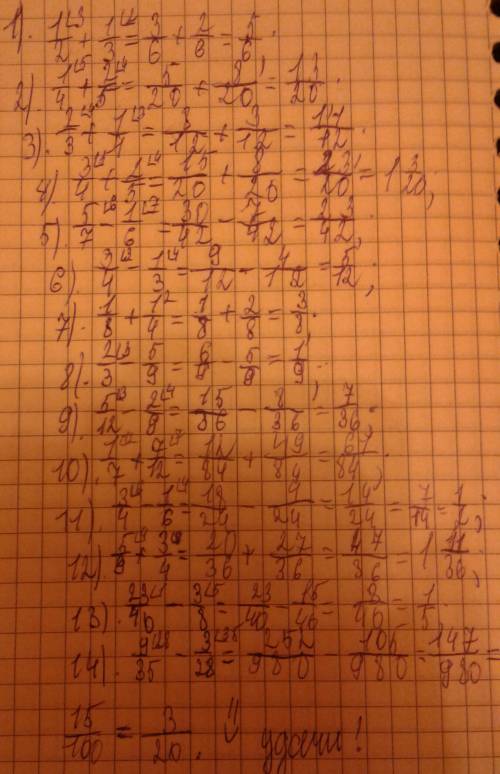 1). 1/2 + 1/3 = 3/6 + 2/6 = 5/6.
2) 1/4 + 2/5 = 5/20 + 8/20 = 13/20.
3). 2/3 + 1/4 = /12 + 3/12 = /12.
4) 3/4 + 2/5 = 15/20 + 8/20 = 23/20 = 1 3/20;
5). 5/7 - 1/6 = 30/42 - 7/42 = 23/42;
6) 3/4 - 1/3 = 9/12 - 4/12 = 5/12;
7) 1/8 + 1/4 = 1/8 + 2/8 = 3/8.
8). 2/3 - 5/9 = 6/9 - 5/9 = 1/9.
9) 5/12 - 2/9 = 15/36 - 8/36 = 7/36;
10) 1/7 + 7/12 = 12/84 + 49/84 = 61/84;
11). 3/4 - 1/6 = 18/24 - 4/24 = 14/24 = 7/14 = 1/2;
12) 5/9 + 3/4 = 20/36 + 27/36 = 47/36 = 1 11/36;
13). 23/40 - 3/8 = 23/40 - 15/40 = 8/40 = 1/5.
14). 9/35 - 3/28 = 252/980 - 105/980 = 147/980 =
15/100 = 3/20. удачи!